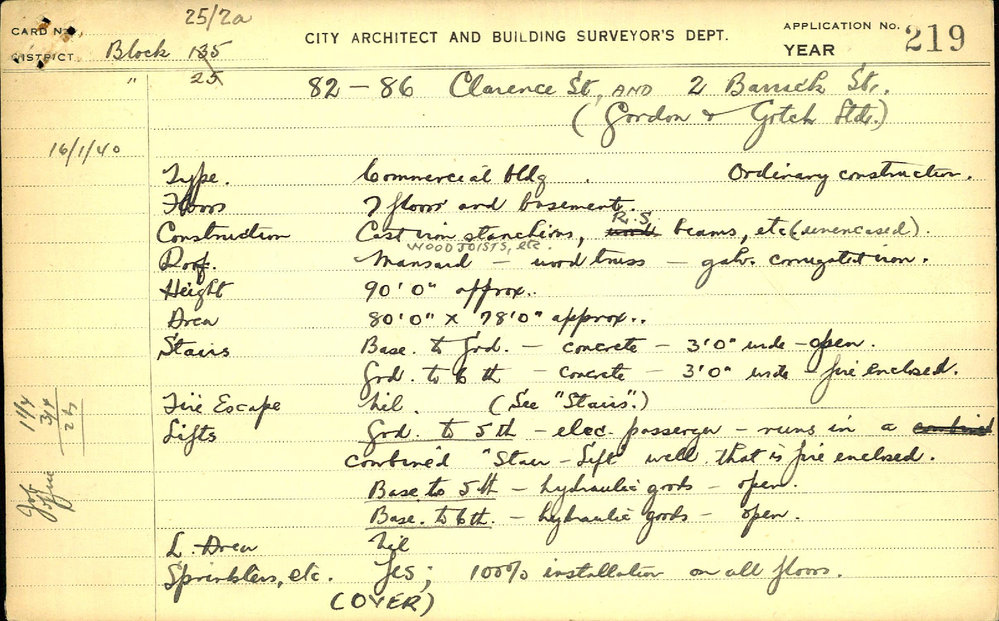 25/2a
CARD No. CITY ARCHITECT AND BUILDING SURVEYOR'S DEPT. APPLICATION No. 219
DISTRICT Block 135 YEAR
" 25 82 - 86 Clarence St, AND 2 Barrack St.
(Gordon & Gotch Ltd.)
16/1/40
Type. Commercial bldg. Ordinary construction.
Floors 7 floors and basement.
R.S.
Construction Cast iron stanchions, wood beams, etc (unencased).
WOOD JOISTS, etc.
Roof. Mansard - wood truss - galv. corrugated iron.
Height 90'0" approx.
Area 80'0" x 78'0" approx..
Stairs Base. to Grd. - concrete - 3'0" wide - open.
Grd. to 6th - concrete - 3'0" wide - fire enclosed.
Fire Escape Nil. (See "Stairs".)
Lifts Grd. to 5th - elec. passenger - runs in a combined
combined "Stair - Lift" well that is fire enclosed.
Base to 5th - hydraulic goods - open.
Base. to 6th. - hydraulic goods - open.
L. Area Nil
Sprinklers, etc. Yes; 100% installation on all floors.
(OVER)